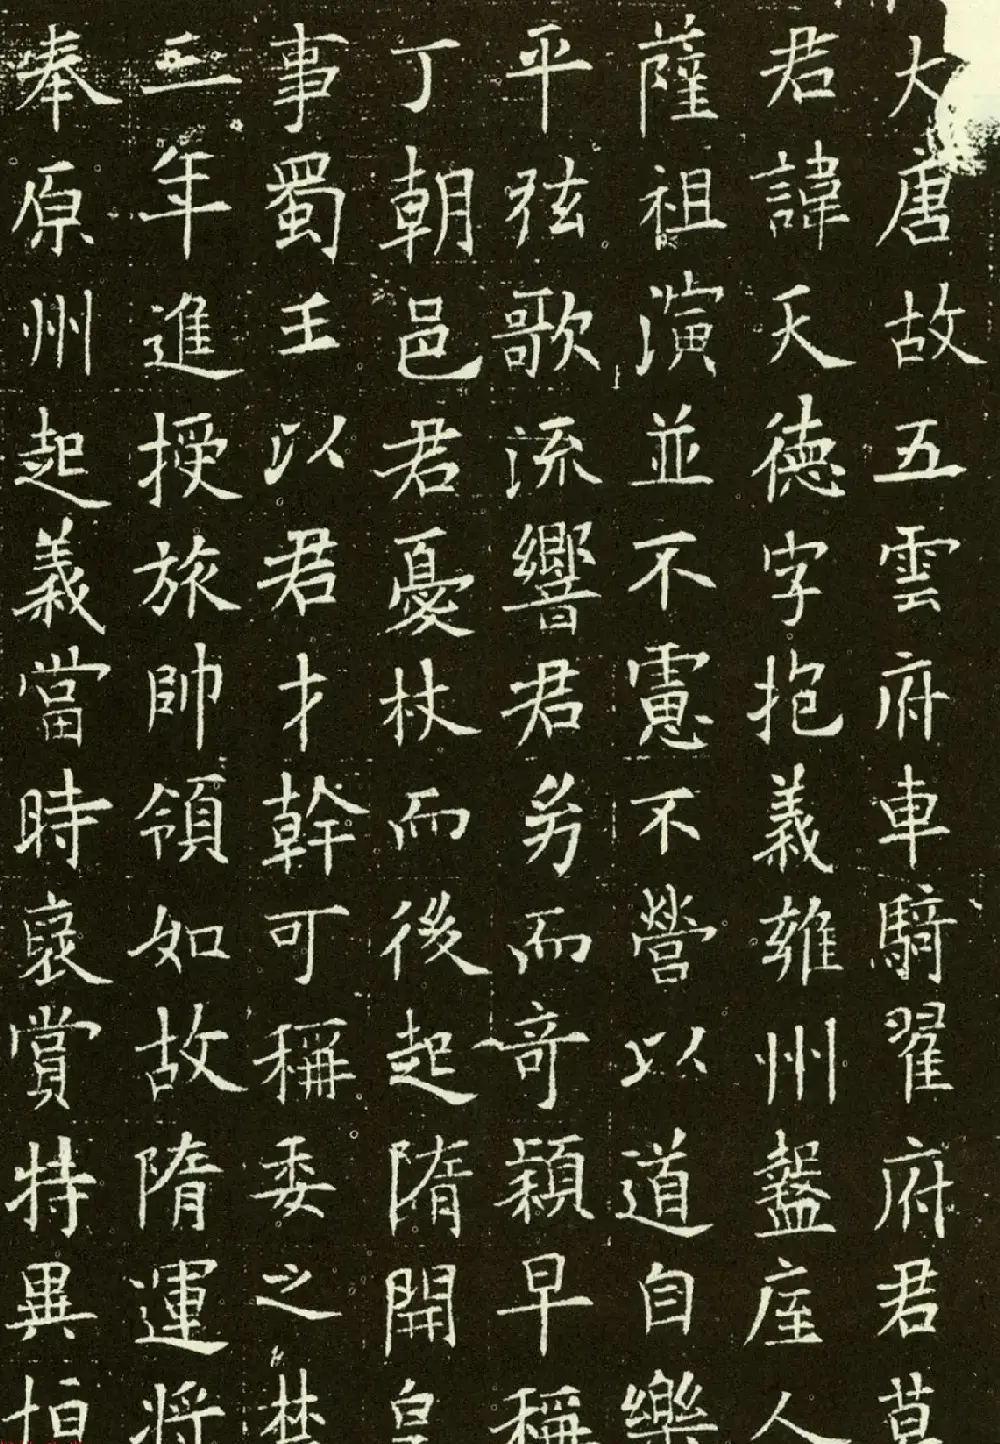 大唐故五雲府車騎翟府君墓
君諱天德字抱義雍州盩庢人
薩祖演並不慮不營以道自樂
平弦歌流響君㓜而奇穎早稱
丁朝邑君憂杖而後起隋開皇
事蜀王以君才幹可稱委之禁
二年進授旅帥領如故隋運將
奉原州起義當時褒賞特異恒